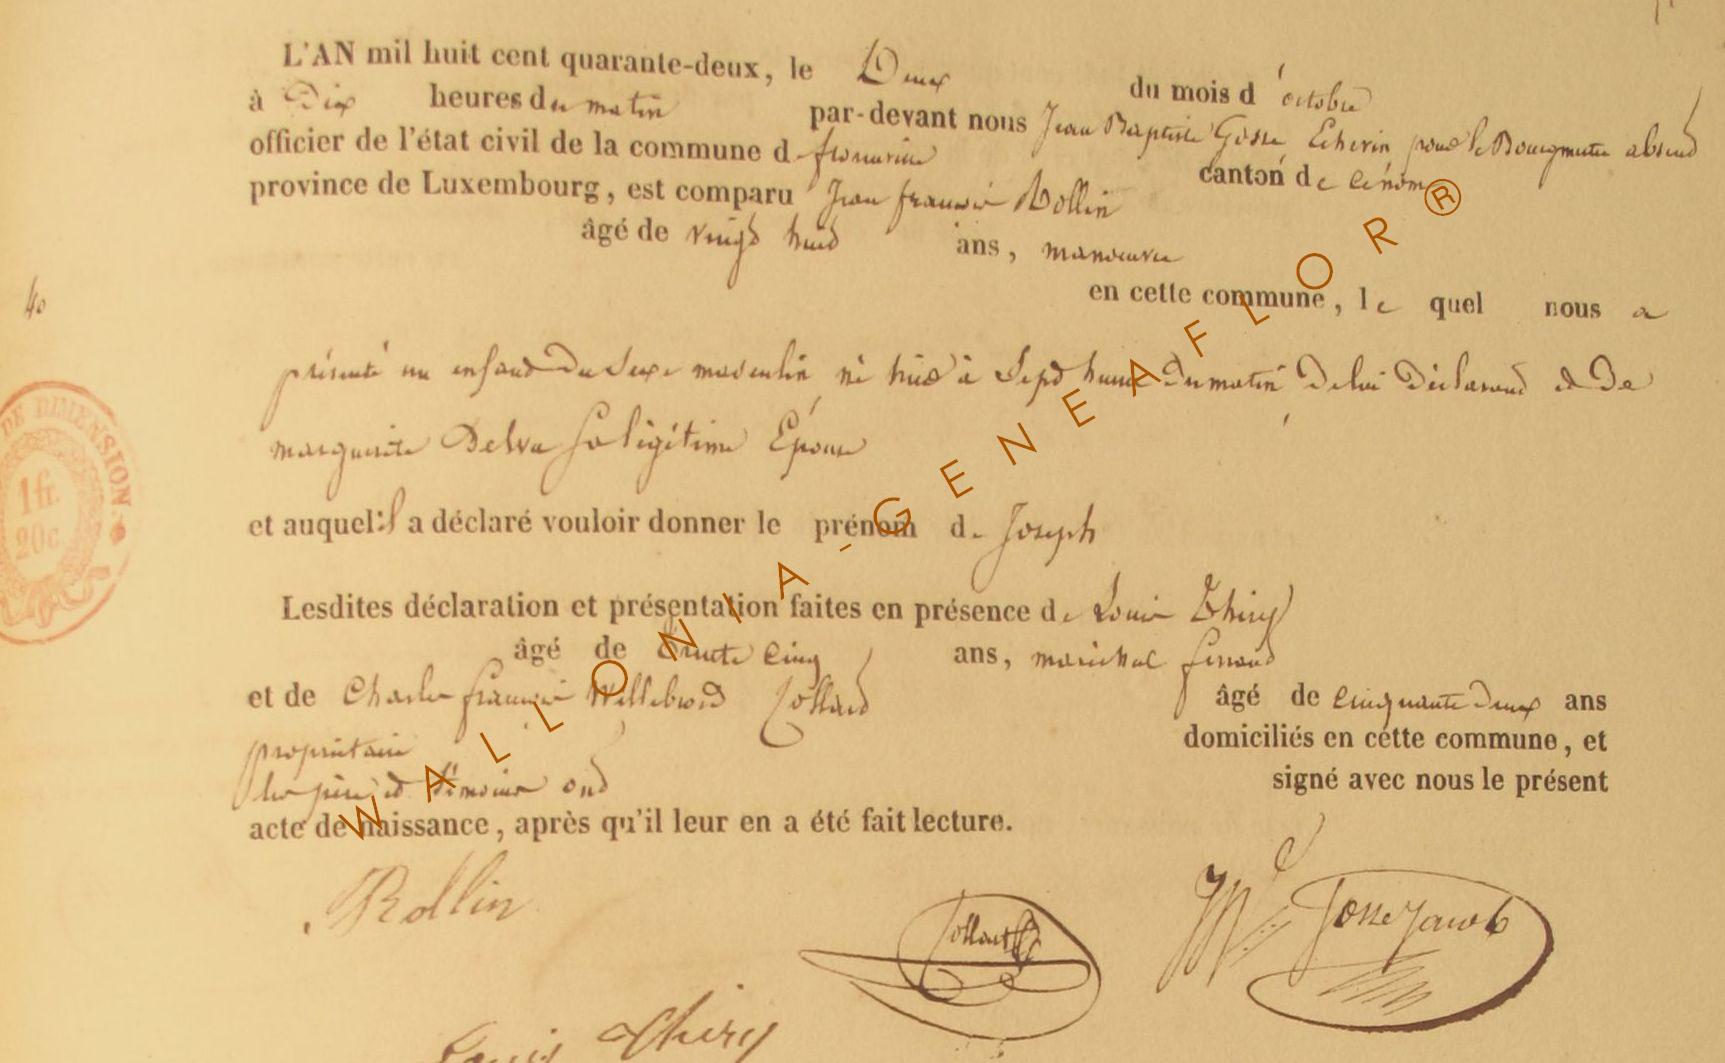 L'AN mil huit cent quarante-deux, le Deux du mois d'octobre
à Dix heures du matin par-devant nous Jean Baptiste Gosse Echevin pour le Bourgmestre absend
officier de l'état civil de la commune d canton de
province de Luxembourg, est comparu Jean françois Rollin
âgé de vingt huid ans, manoeuvre
en cette commune, le quel nous a
40
présenté un enfand du sexe masculin né hier à Sept heures du matin de lui déclarand et de
marguerite Delva sa légitime Epouse
et auquel il a déclaré vouloir donner le prénom de Joseph
DE DIMENSION.
1 fr.
20c.
Lesdites déclaration et présentation faites en présence de Louis Thiry
âgé de trente cinq ans, maréchal ferrand
et de Charles françois Willebrord Collard âgé de cinquante deux ans
propriétaire domiciliés en cette commune, et
les père et témoins ond signé avec nous le présent
acte de naissance, après qu'il leur en a été fait lecture.
Rollin
Collard
Louis Thiry
WALLONIA-GENEAFLOR®